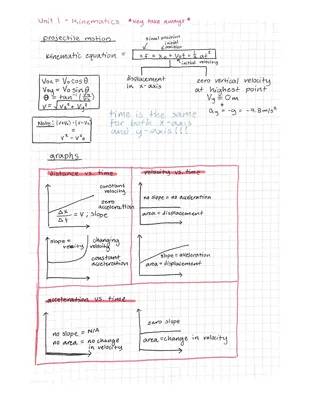 Unit 1 - Kinematics *key take aways*
projectile motion
final position
initial position
kinematic equation = xf = x₀ + V₀t + ½at²
initial velocity
V₀ₓ = V₀cosθ
V₀y = V₀sinθ
θ = tan⁻¹
V = √Vₓ² + Vy²
displacement
in x-axis
zero vertical velocity
at highest point
Vy = 0m
ay = -g = -9.8m/s²
Note:
= V² - V₀²
time is the same
for both x-axis
and y-axis!!!
graphs
distance vs time
constant
velocity
zero
acceleration
Δx
= V ; slope
slope =
velocity
changing
velocity
constant
acceleration
velocity vs time
no slope = no acceleration
area = displacement
slope = acceleration
area = displacement
acceleration vs. time
no slope = N/A
no area = no change
in velocity
zero slope
area = change in velocity